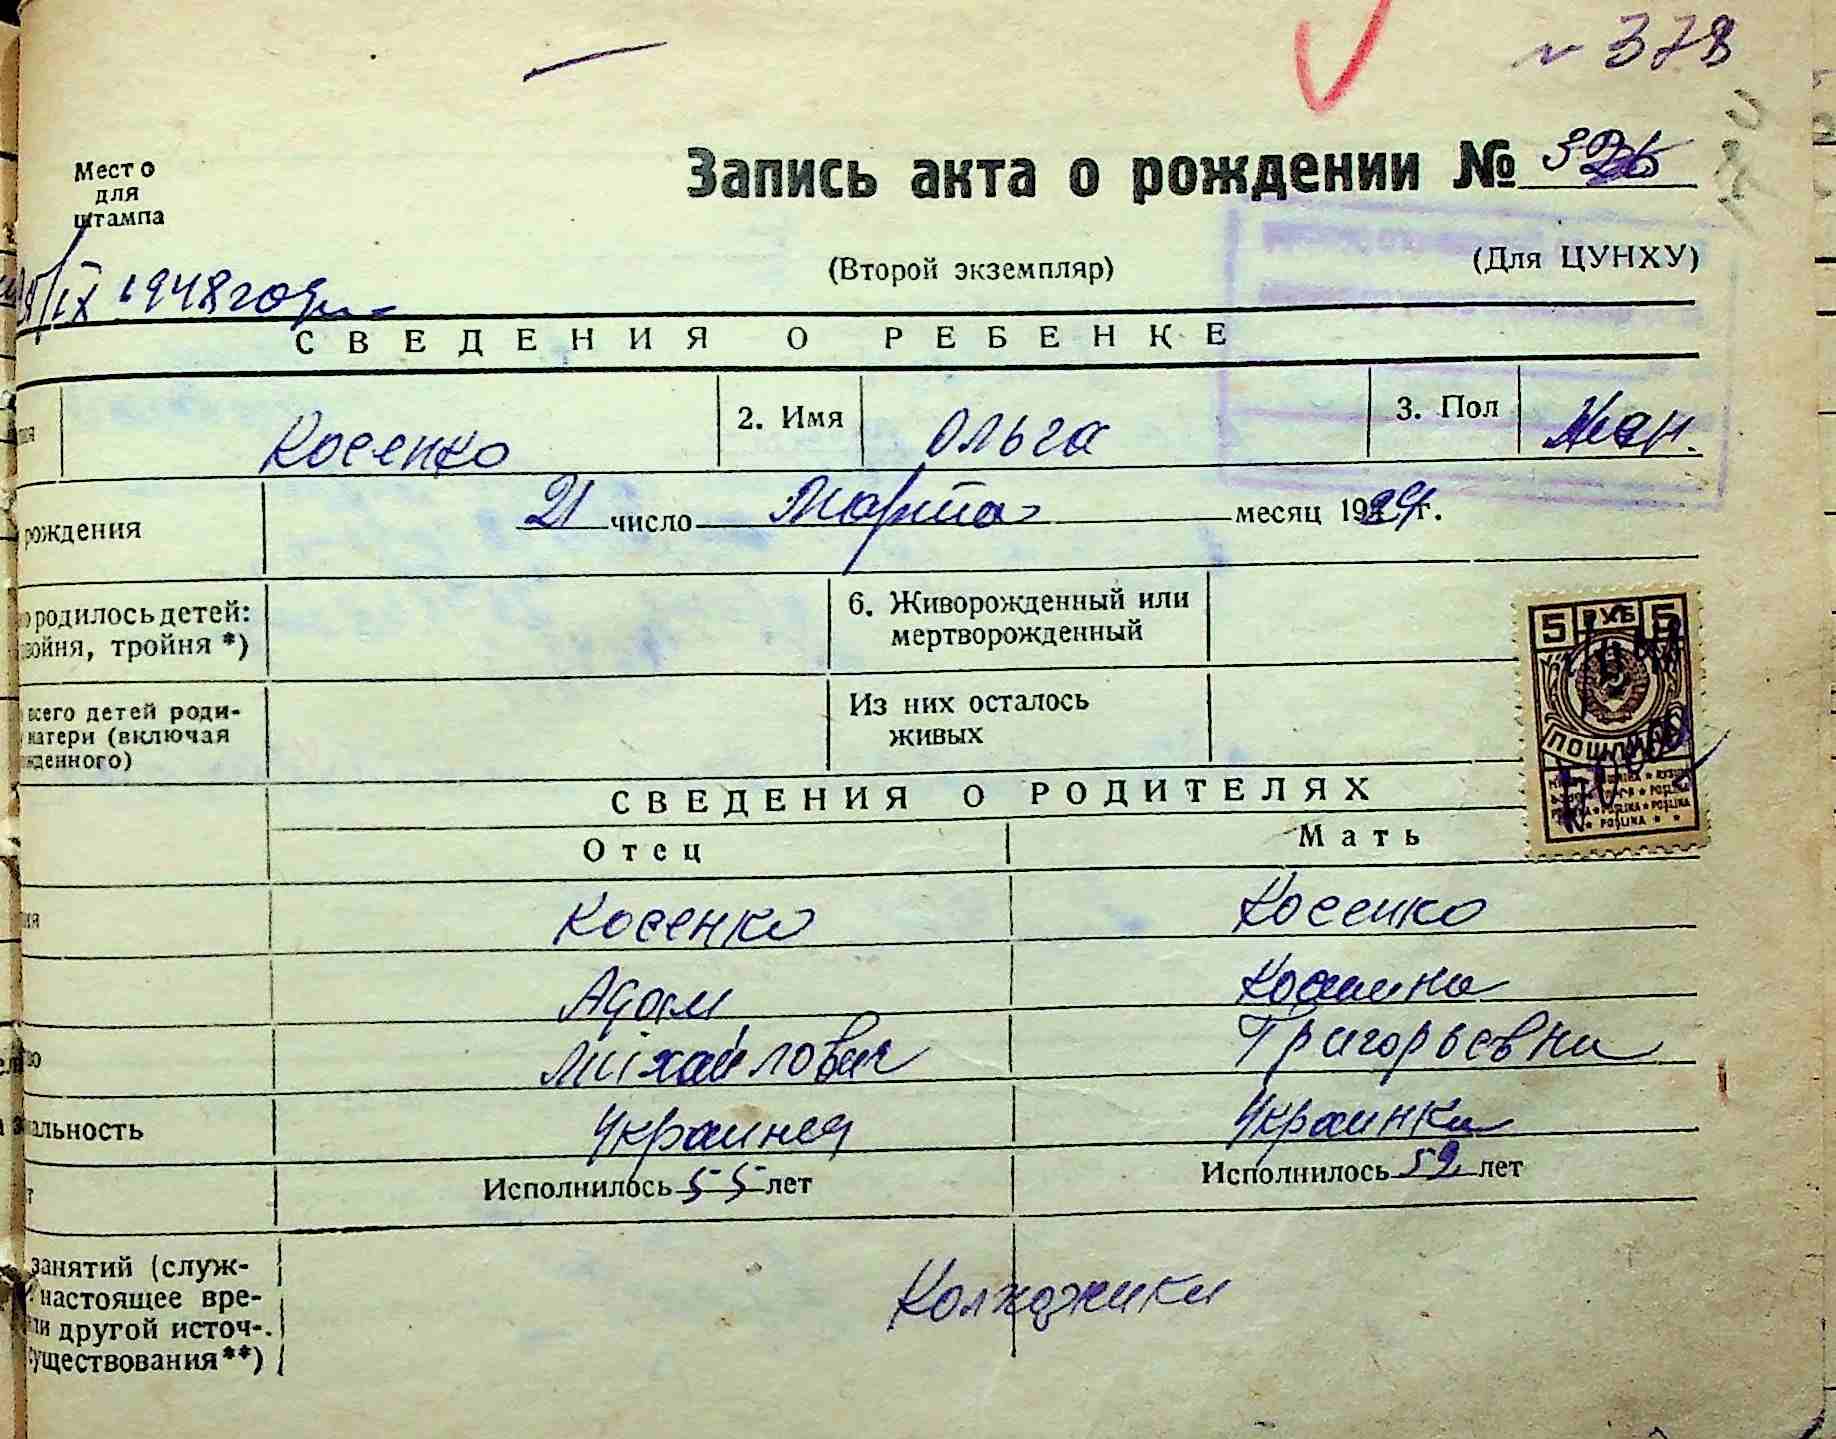 № 378
Место
для
штампа
Запись акта о рождении №
(Второй экземпляр)
(Для ЦУНХУ)
/IX 1948 года
СВЕДЕНИЯ О РЕБЕНКЕ
Косенко 2. Имя Ольга 3. Пол Жен.
рождения 21 число Марта месяц 1924 г.
родилось детей:
войня, тройня *)
6. Живорожденный или
мертворожденный
всего детей роди-
матери (включая
жденного)
Из них осталось
живых
5 РУБ 5
ПОШЛИНА
POŞLINA
СВЕДЕНИЯ О РОДИТЕЛЯХ
Отец Мать
Косенко Косенко
Адам
Міхайлович Григорьевна
альность Украинец Украинка
Исполнилось 55 лет Исполнилось 52 лет
занятий (служ-
настоящее вре-
ли другой источ-
существования**)